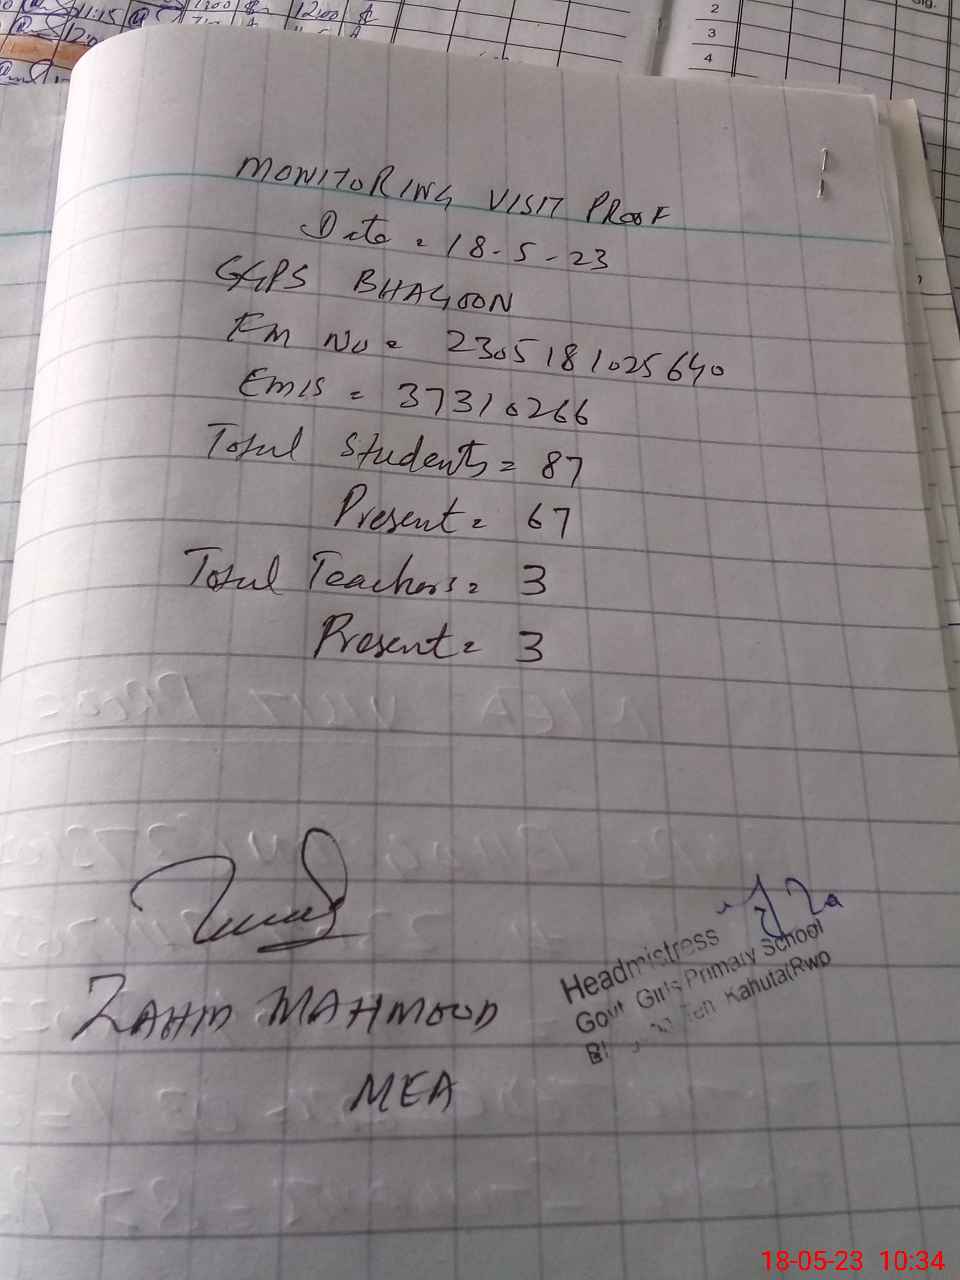 MONITORING VISIT PROOF
Date = 18-5-23
GGPS BHAGOON
FM No = 2305181025640
Emis = 37310266
Total Students = 87
Present = 67
Total Teachers = 3
Present = 3
ZAHID MAHMOOD
MEA
Headmistress
Govt Girls Primary School
Teh Kahuta(Rwp
18-05-23 10:34
11:15
1200
12:00
2
3
4
Sig.